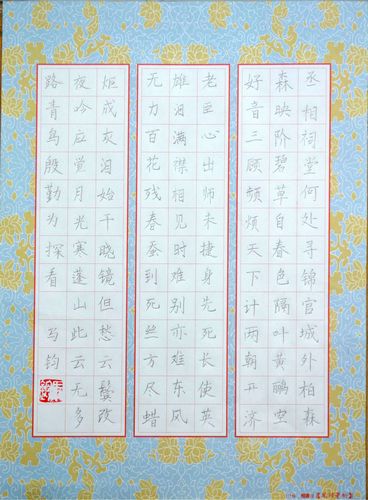 丞相祠堂何处寻锦官城外柏森
森映阶碧草自春色隔叶黄鹂空
好音三顾频烦天下计两朝开济
老臣心出师未捷身先死长使英
雄泪满襟相见时难别亦难东风
无力百花残春蚕到死丝方尽蜡
炬成灰泪始干晓镜但愁云鬓改
夜吟应觉月光寒蓬山此云无多
路青鸟殷勤为探看 马钧